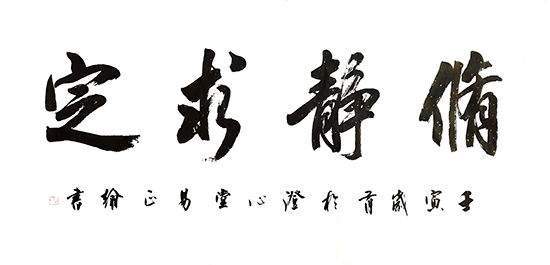 脩静求定
壬寅歲首於澄心堂易正翰書